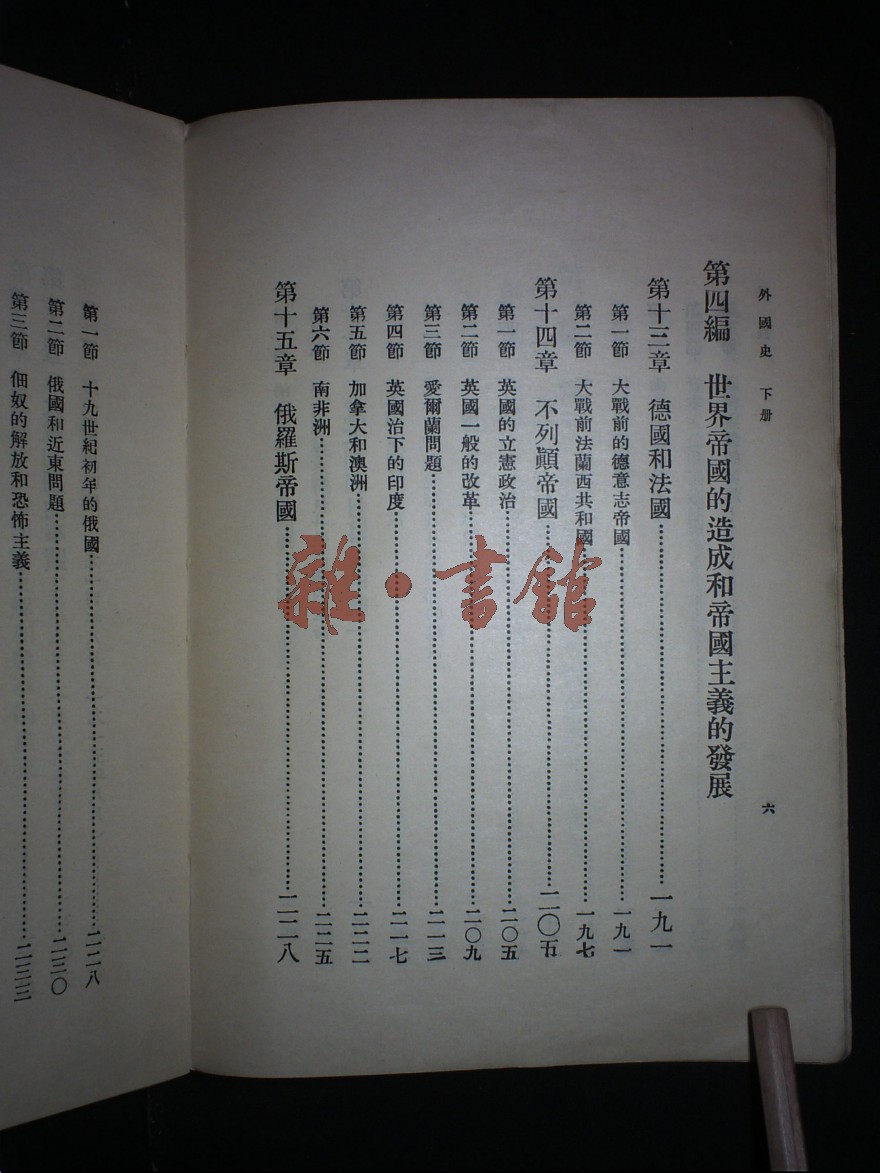 外國史 下册 六
第四編 世界帝國的造成和帝國主義的發展
第十三章 德國和法國……一九一
第一節 大戰前的德意志帝國……一九一
第二節 大戰前法蘭西共和國……一九七
第十四章 不列顛帝國……二〇五
第一節 英國的立憲政治……二〇五
第二節 英國一般的改革……二〇九
第三節 愛爾蘭問題……二一三
第四節 英國治下的印度……二一七
第五節 加拿大和澳洲……二二二
第六節 南非洲……二二五
第十五章 俄羅斯帝國……二二八
第一節 十九世紀初年的俄國……二二八
第二節 俄國和近東問題……二三〇
第三節 佃奴的解放和恐怖主義……二三三
雜·書館